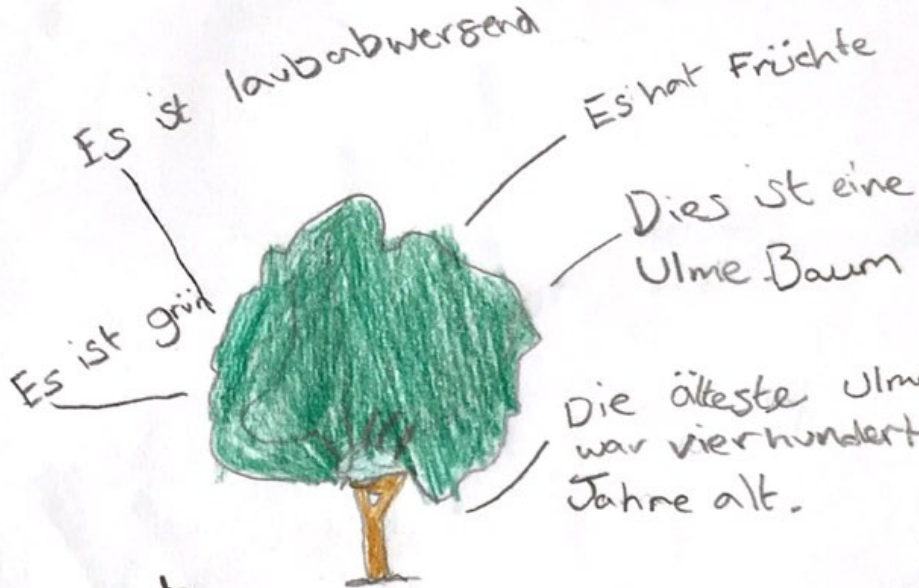 Es ist laubabwersend
Es hat Früchte
Dies ist eine
Ulme Baum
Es ist grün
Die älteste Ulme
war vierhundert
Jahre alt.